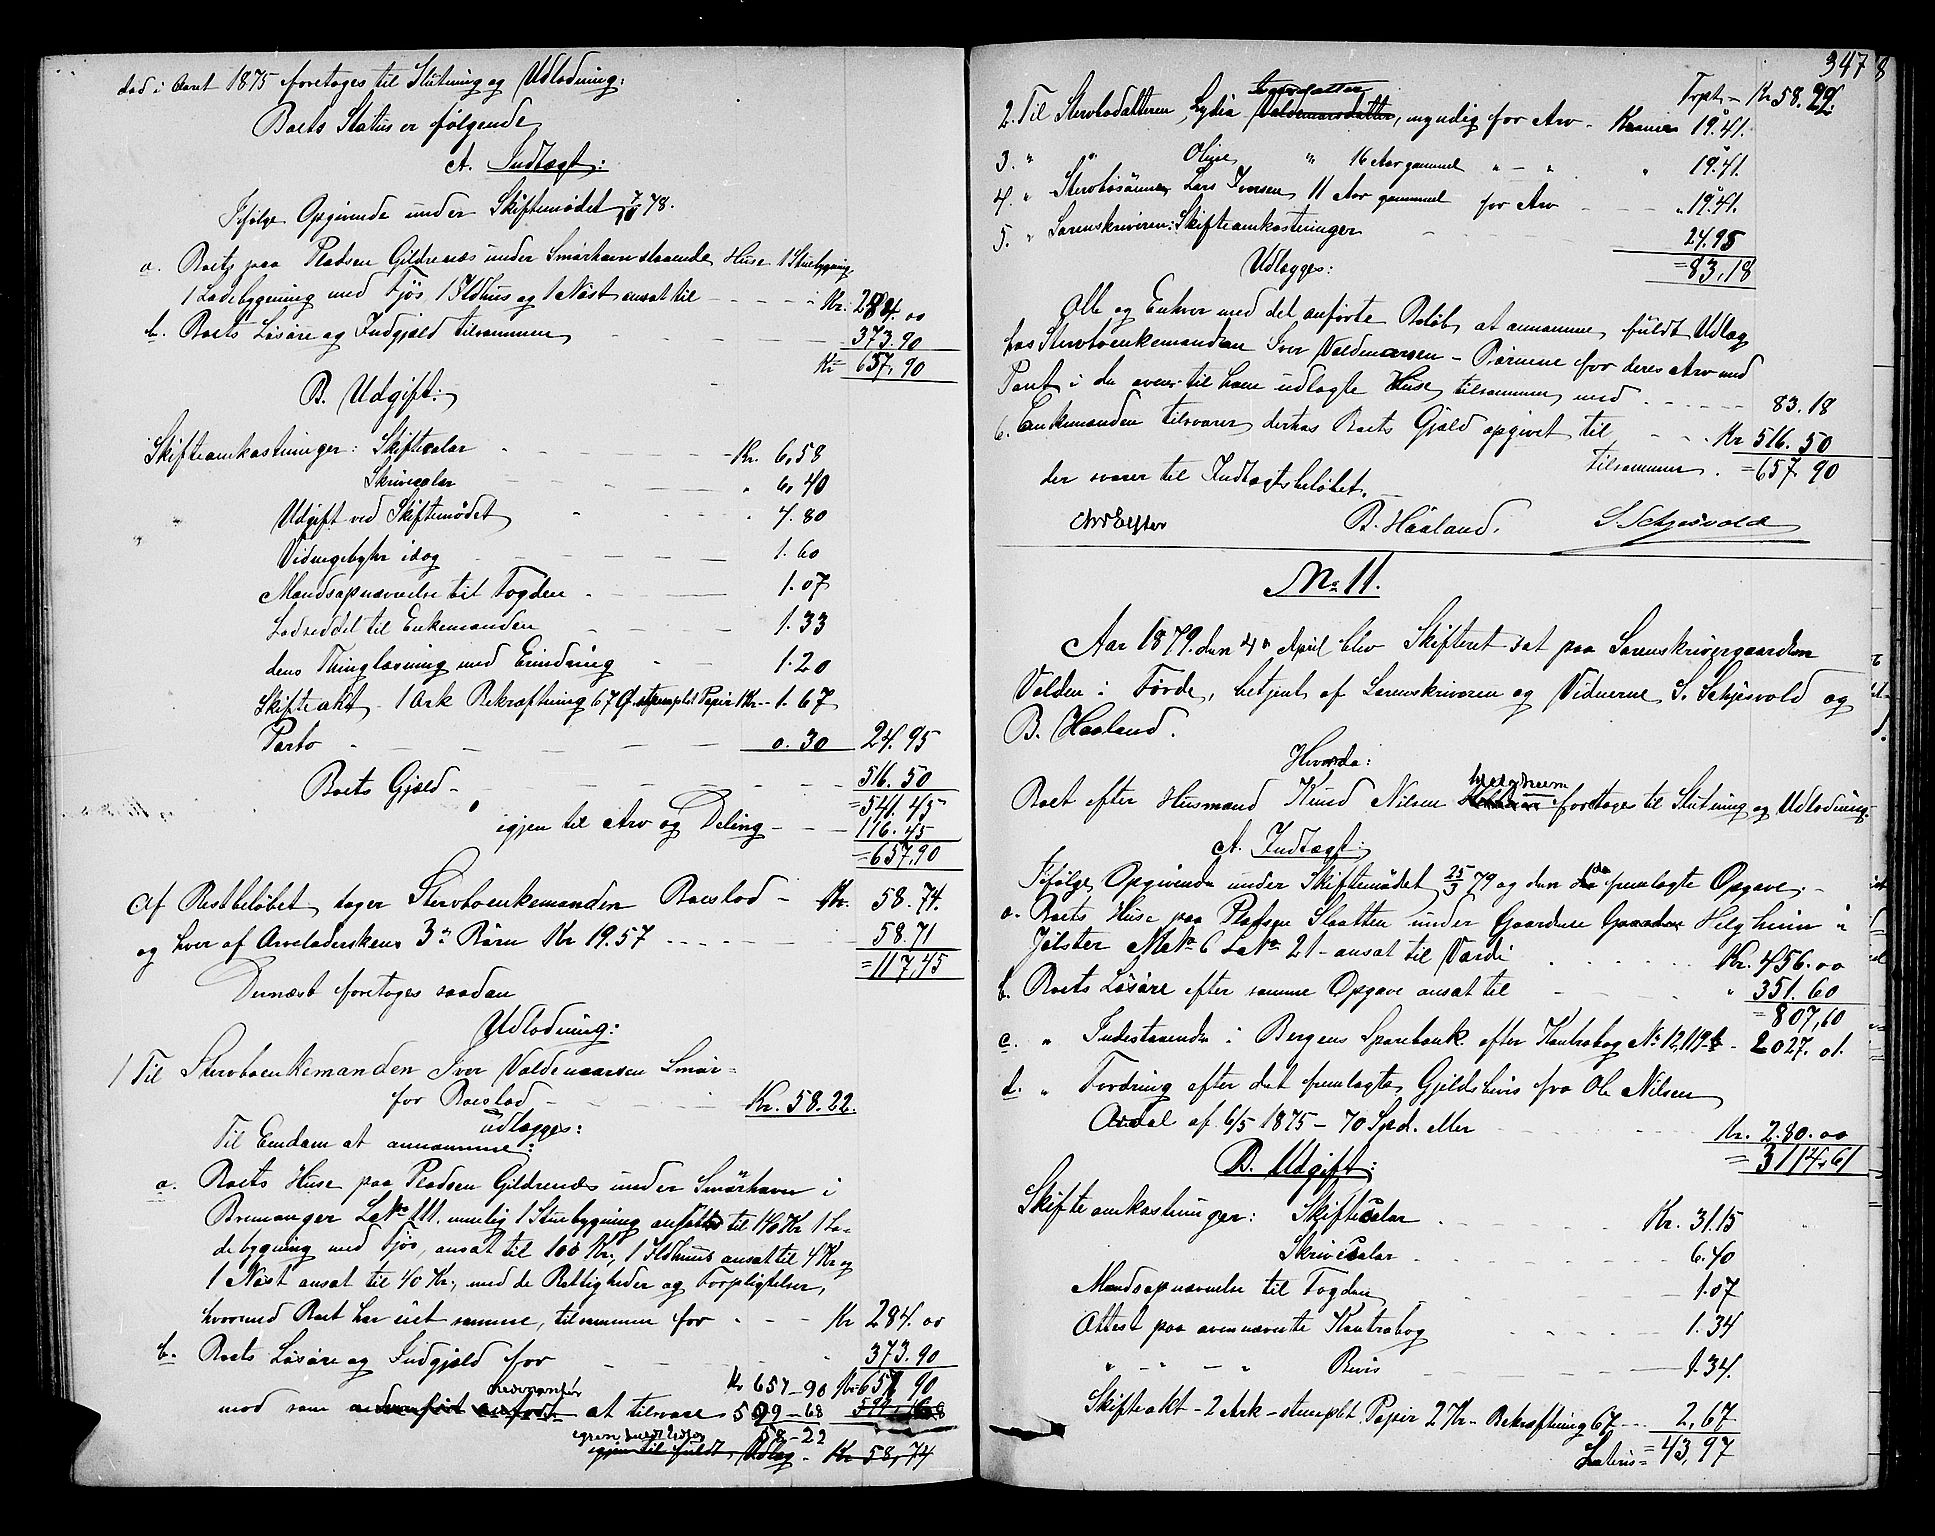 død i Aaret 1875 foretoges til Slutning og Udlodning:
Boets Status er følgende
A. Indtægt:
Ifølge Opgivende under Skiftemødet 78.
a. Boets paa Pladsen Gildrenæs under Smørhavn staaende Huse 1 Stuebygning,
1 Ladebygning med Fjøs, 1 Ildhus og 1 Nøst ansat til - - - - Kr. 284.00
b. Boets Løsøre og Indgjæld tilsammen 373.90
Kr 657,90
B. Udgift:
Skifteomkostninger: Skiftesalar Kr. 6,58
Skrivesalar " 6,40
Udgift ved Skiftemødet " 4.80
Vidnegebyhr idag 1.60
Mandsopnævnelse til Fogden 1.07
Lodseddel til Enkemanden 1.33
dens Thinglæsning med Erindring 1.20
Skifteakt - 1 Ark Bekræftning 67 Ø stemplet Papir 1 Kr - 1.67
Porto 0.30 24.95
Boets Gjæld - 516.50
= 541.45
igjen til Arv og Deling - - - 116.45
= 657,90
Af Restbeløbet tager Stervboenkemanden Boeslod - Kr. 58.74.
og hver af Arveladerskens 3de Børn Kr 19.57 58.71
= 117,45
Dernæst foretoges saadan
Udlodning:
1 Til Stervboenkemanden Iver Valdemarsen Smør=
for Boeslod - Kr. 58.22.
udlægges:
Til Eiendom at annamme:
a. Boets Huse paa Pladsen Gildrenæs under Smørhavn i
Bremanger LaNo 111. nemlig 1 Stuebygning ansat til 140 Kr 1 La=
debygning med Fjøs, ansat til 100 Kr, 1 Ildhuus ansat til 4 Kr og
1 Nøst ansat til 40 Kr, med de Rettigheder og Forpligtelser,
hvormed Boet har eiet samme, tilsammen for - - - Kr 284.00
b. Boets Løsøre og Indgjæld for 373.90
Kr 657-90 Kr=657.90
nedenanfør
mod som anført at tilsvare 599-68
58-22
igjen til fuldt Udlæg - Kr 58,74
347
Trpt - Kr 58.22
2. Til Stervbodatteren Lydia Valdemarsdatter, myndig for Arv - Kroner 19.41.
3. " " Oline " 16 Aar gammel " - " " 19.41.
4. " Stervbosønnen Lars Iversen 11 Aar gammel for Arv " 19.41.
5. " Sorenskriveren: Skifteomkostninger 24.95
= 83,18
Udlægges:
Alle og Enhver med det anførte Beløb at annamme fuldt Udlæg
hos Stervboenkemanden Iver Valdemarsen - Børnene for deres Arv med
Pant i de oven til ham udlagte Huse tilsammen med - - - - - 83.18
6. Enkemanden tilsvarer derhos Boets Gjæld opgivet til - - Kr 516.50
Tilsammen. = 657.90
der svarer til Indtægtsbeløbet.
B. Haaland. S Schjesvold
No 11.
Aar 1879. den 4de April blev Skifteret sat paa Sorenskrivergaarden
Volden i Førde, betjent af Sorenskriveren og Vidnerne S. Schjesvold og
B. Haaland.
Hvorda:
Helgheim
Boet efter Husmand Knud Nilsen foretoges til Slutning og Udlodning.
A. Indtægt:
Ifølge Opgivende under Skiftemødet 25/3 79 og den da fremlagte Opgave: -
a. Boets Huse paa Pladsen Slaatten under Gaardene Gaarden Helgheim i
Jølster MaNo 6 LaNo 21 - ansat til Værdi Kr. 456.00
b. Boets Løsøre efter samme Opgave ansat til " 351.60
= 807,60
c. " Indestaaende i Bergens Sparebank efter Kontrabog No 12,119 - 2027.01.
d. " Fordring efter det fremlagte Gjeldsbevis fra Ole Nilsen
Aardal af 6/5 1875 - 70 Spd. eller Kr. 280.00
= 3114,61
B. Udgift:
Skifteomkostninger: Skiftesalar Kr. 31.15
Skrivesalar 6.40
Mandsopnævnelse til Fogden 1.07
Attest paa ovennævnte Kontrabog 1.34
" - " - " Bevis 1.34.
Skifteakt - 2 Ark - stemplet Papir 2 Kr - Bekræftning 67 - - 2,67
Lateris = 43,97